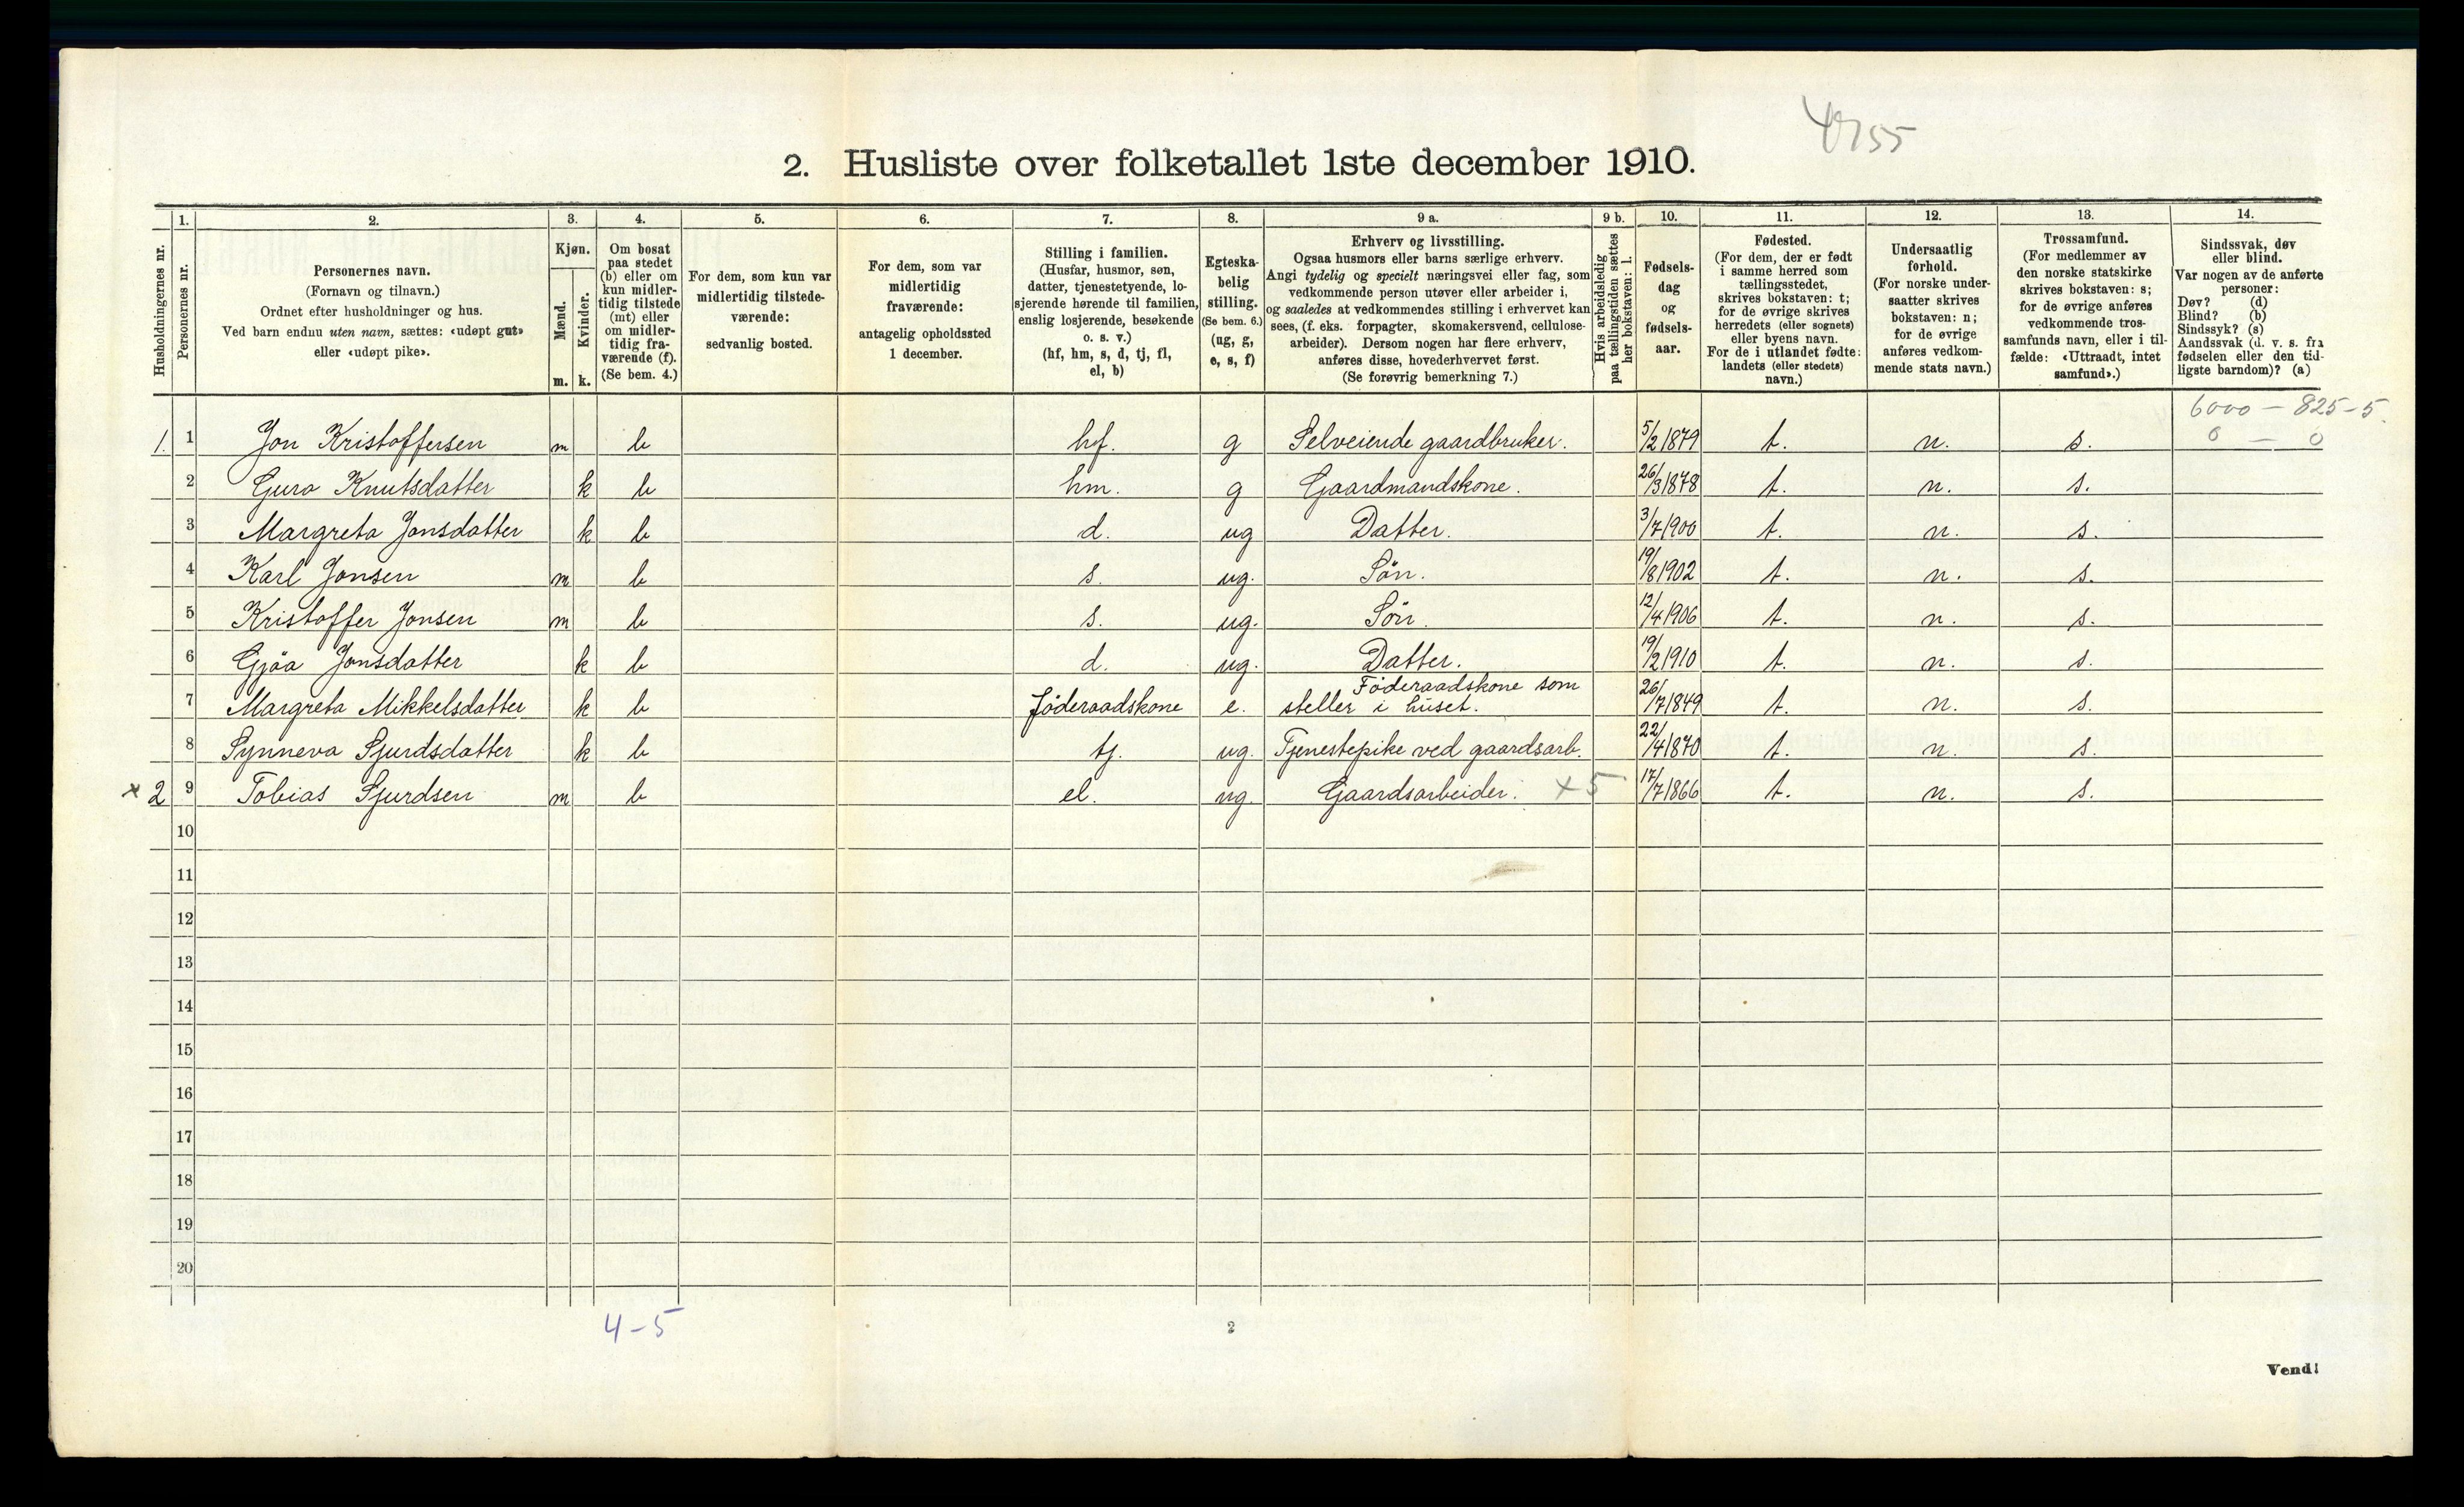 4755
2. Husliste over folketallet 1ste december 1910.
Husholdningernes nr.
1.
Personernes nr.
2.
Personernes navn.
(Fornavn og tilnavn.)
Ordnet efter husholdninger og hus.
Ved barn endnu uten navn, sættes: «udøpt gut»
eller «udøpt pike».
3.
Kjøn.
Mænd.
Kvinder.
m. k.
4.
Om bosat
paa stedet
(b) eller om
kun midler-
tidig tilstede
(mt) eller
om midler-
tidig fra-
værende (f).
(Se bem. 4.)
5.
For dem, som kun var
midlertidig tilstede-
værende:
sedvanlig bosted.
6.
For dem, som var
midlertidig
fraværende:
antagelig opholdssted
1 december.
7.
Stilling i familien.
(Husfar, husmor, søn,
datter, tjenestetyende, lo-
sjerende hørende til familien,
enslig losjerende, besøkende
o. s. v.)
(hf, hm, s, d, tj, fl,
el, b)
8.
Egteska-
belig
stilling.
(Se bem. 6.)
(ug, g,
e, s, f)
9 a.
Erhverv og livsstilling.
Ogsaa husmors eller barns særlige erhverv.
Angi tydelig og specielt næringsvei eller fag, som
vedkommende person utøver eller arbeider i,
og saaledes at vedkommendes stilling i erhvervet kan
sees, (f. eks. forpagter, skomakersvend, cellulose-
arbeider). Dersom nogen har flere erhverv,
anføres disse, hovederhvervet først.
(Se forøvrig bemerkning 7.)
9 b.
Hvis arbeidsledig
paa tællingstiden sættes
her bokstaven: l.
10.
Fødsels-
dag
og
fødsels-
aar.
11.
Fødested.
(For dem, der er født
i samme herred som
tællingsstedet,
skrives bokstaven: t;
for de øvrige skrives
herredets (eller sognets)
eller byens navn.
For de i utlandet fødte:
landets (eller stedets)
navn.)
12.
Undersaatlig
forhold.
(For norske under-
saatter skrives
bokstaven: n;
for de øvrige
anføres vedkom-
mende stats navn.)
13.
Trossamfund.
(For medlemmer av
den norske statskirke
skrives bokstaven: s;
for de øvrige anføres
vedkommende tros-
samfunds navn, eller i til-
fælde: «Uttraadt, intet
samfund».)
14.
Sindssvak, døv
eller blind.
Var nogen av de anførte
personer:
Døv? (d)
Blind? (b)
Sindssyk? (s)
Aandssvak (d. v. s. fra
fødselen eller den tid-
ligste barndom)? (a)
6000 – 825-5
0 – 0
1. 1 Jon Kristoffersen m b hf. g Selveiende gaardbruker. 5/2 1879 t. n. s.
2 Guro Knutsdatter k b hm. g Gaardmandskone. 26/3 1878 t. n. s.
3 Margreta Jonsdatter k b d. ug Datter. 3/7 1900 t. n. s.
4 Karl Jonsen m b s. ug. Søn. 19/8 1902 t. n. s.
5 Kristoffer Jonsen m b s. ug. Søn. 12/4 1906 t. n. s.
6 Gjøa Jonsdatter k b d. ug. Datter. 19/2 1910 t. n. s.
7 Margreta Mikkelsdatter k b føderaadskone e. Føderaadskone som
steller i huset. 26/7 1849 t. n. s.
8 Synneva Sjurdsdatter k b tj. ug. Tjenestepike ved gaardsarb. 22/4 1870 t. n. s.
x 2 9 Tobias Sjurdsen m b el. ug. Gaardsarbeider. x 5 17/7 1866 t. n. s.
10
11
12
13
14
15
16
17
18
19
20
4-5
2
Vend!